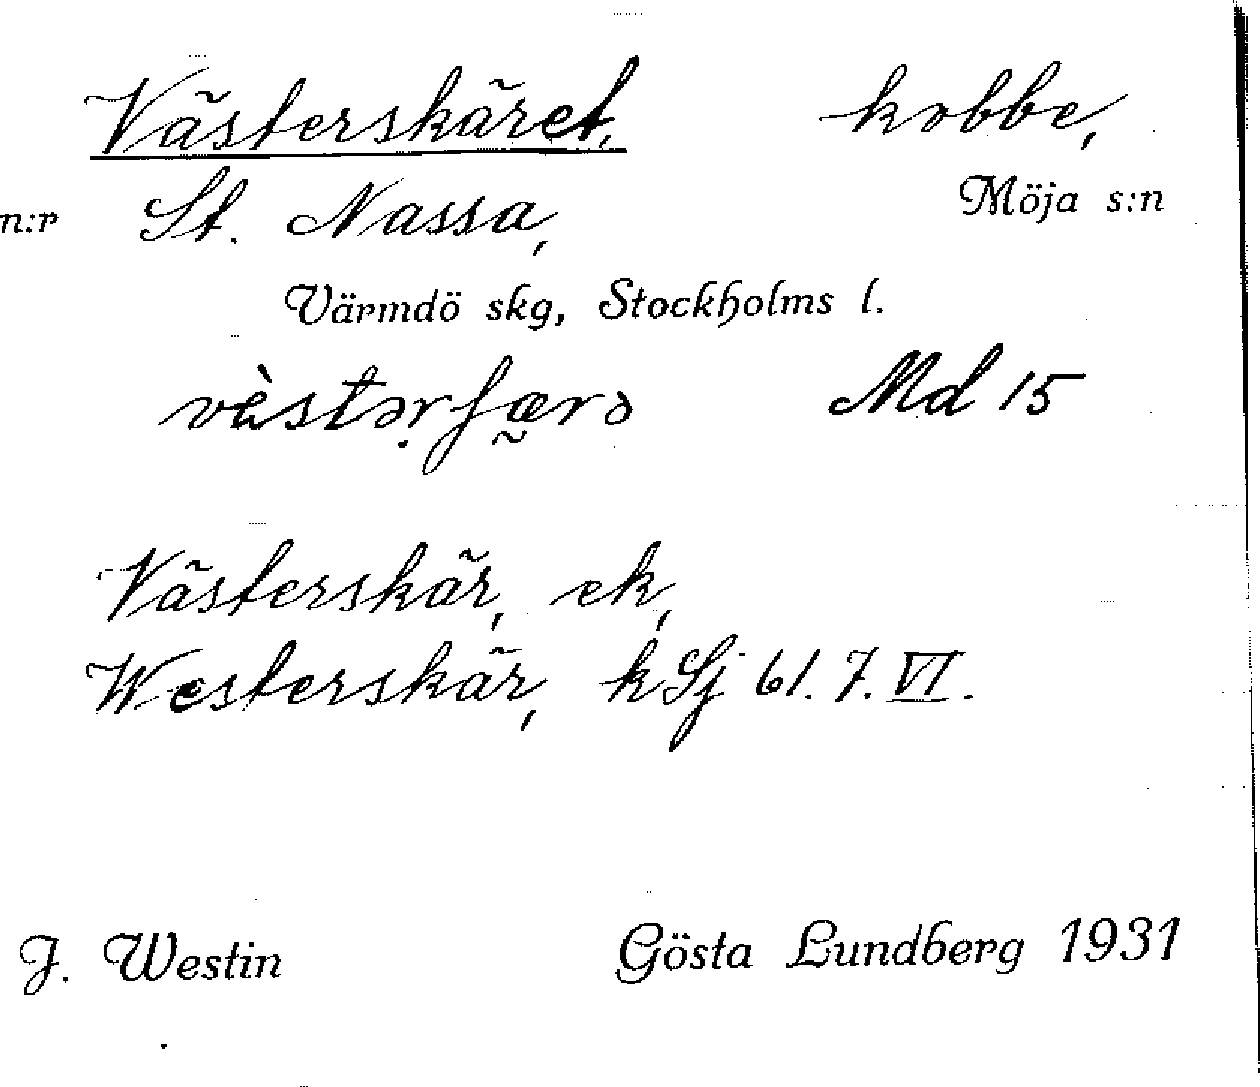 Västerskäret, kobbe,
n:r St. Nassa, Möja s:n
Värmdö skg, Stockholms l.
vèstərʃærə Md 15
Västerskär, ek,
Westerskär, k Sj 61. 7. VI.
J. Westin Gösta Lundberg 1931